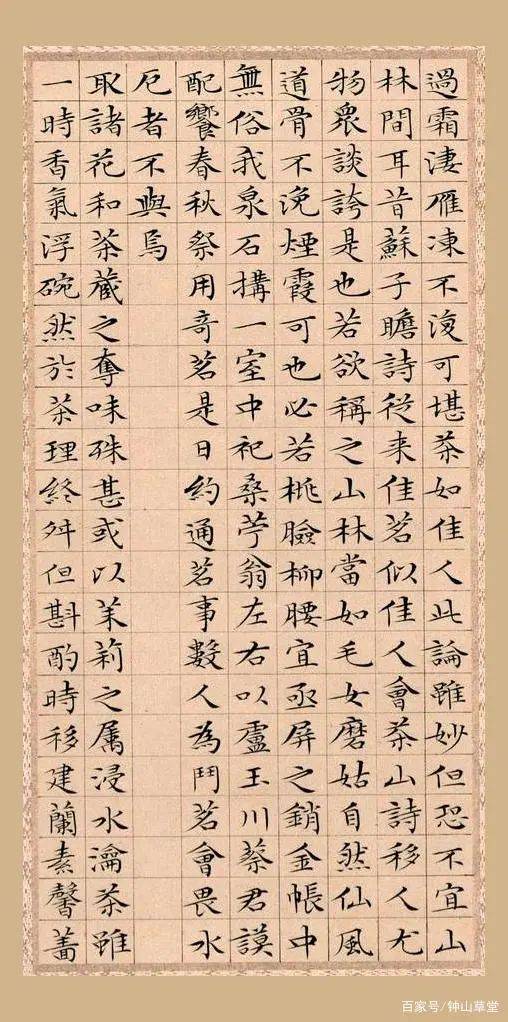 過霜淒雁凍不復可堪茶如佳人此論雖妙但恐不宜山
林間耳昔蘇子瞻詩從来佳茗似佳人會茶山詩移人尤
物衆談誇是也若欲稱之山林當如毛女磨姑自然仙風
道骨不浼煙霞可也必若桃臉柳腰宜亟屏之銷金帳中
無俗我泉石搆一室中祀桑苧翁左右以盧玉川蔡君謨
配饗春秋祭用奇茗是日約通茗事數人為鬥茗會畏水
厄者不與焉
取諸花和茶藏之奪味殊甚或以茉莉之属浸水瀹茶雖
一時香氣浮碗然於茶理終舛但斟酌時移建蘭素馨薔
百家号/钟山草堂